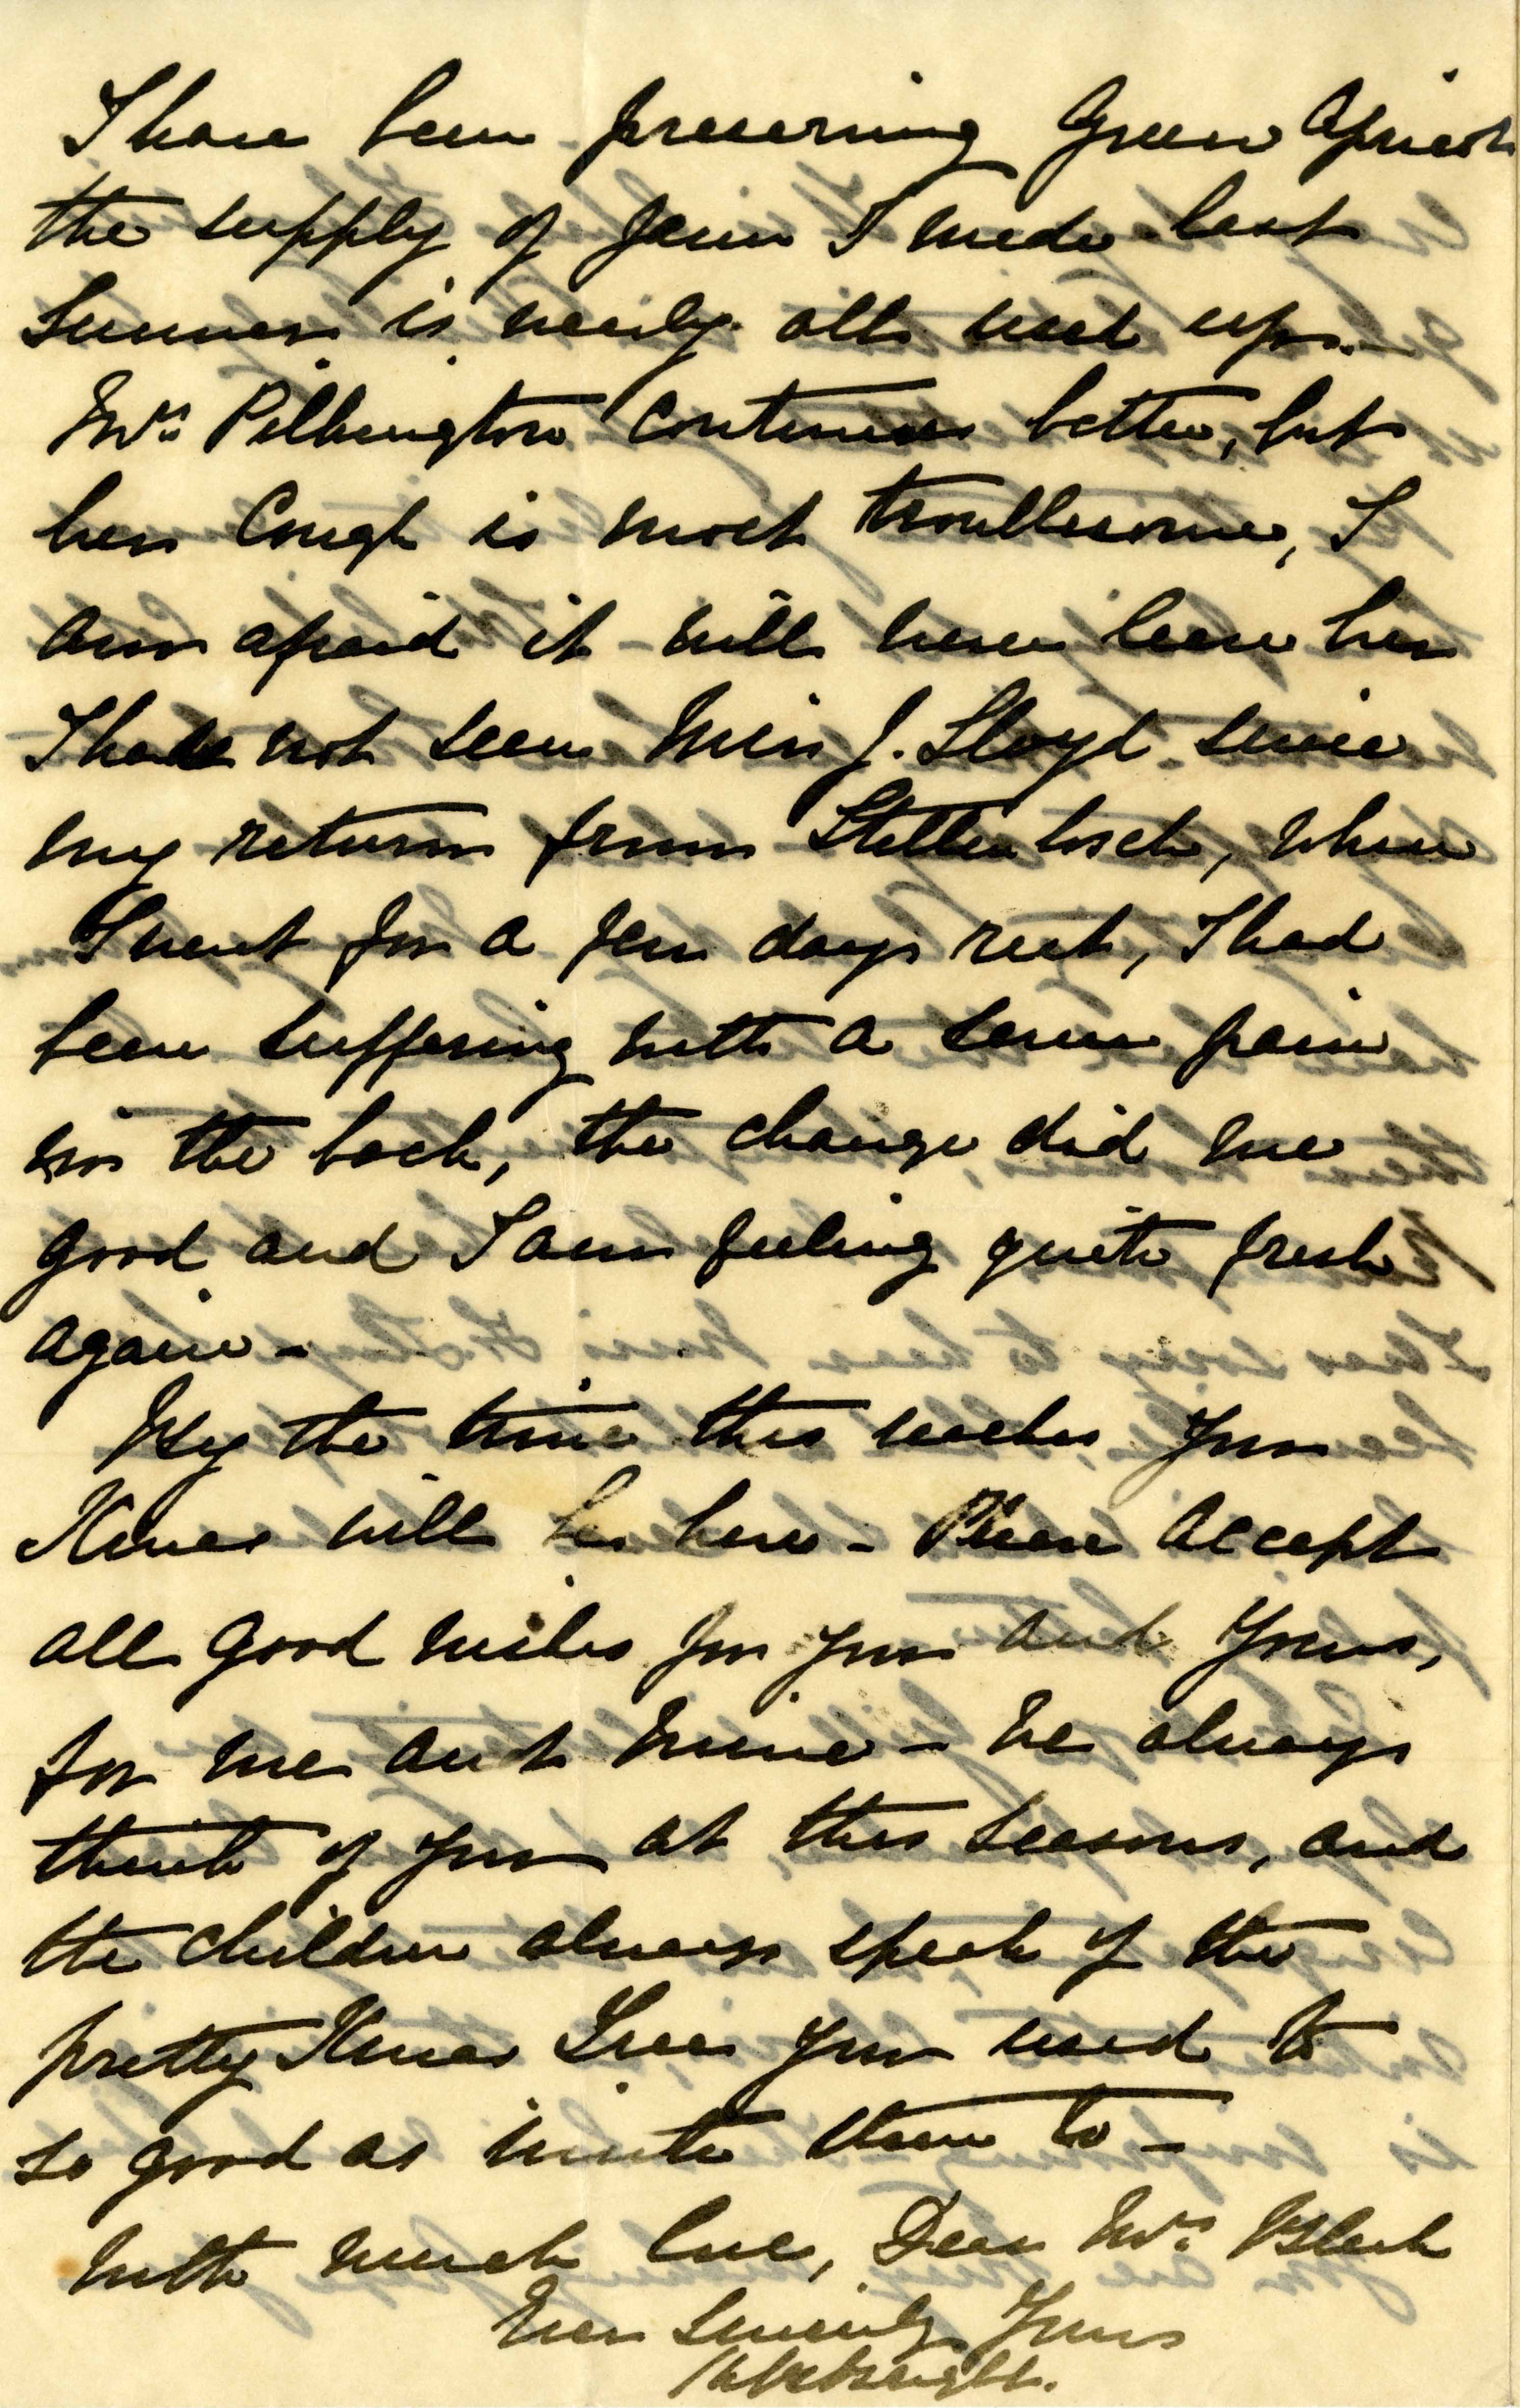 I have been preserving Green Apricots
the supply of Jam I made last
Summer is nearly all used up.
Mrs Pilkington continues better, but
her Cough is most troublesome, I
am afraid it will never leave her
I have not seen Miss J. Lloyd since
my return from Stellenbosch, where
I went for a few days rest, I had
been suffering with a severe pain
in the back, the change did me
good and I am feeling quite fresh
again –
By the time this reaches you
Xmas will be here – Please accept
all good wishes for you and yours,
from me and mine – We always
think of you at this season, and
the children always speak of the
pretty Xmas Tree you used to
so good as invite them to –
With much love, Dear Mrs Bleek
Ever Sincerely Yours